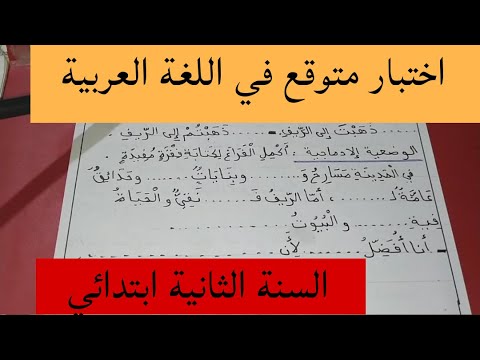 اختبار متوقع في اللغة العربية
..... ذَهَبْتَ إِلَى الرِّيفِ ..... ذَهَبْتُمْ إِلَى الرِّيفِ.
الوضعية الإدماجية : أُكْمِلُ الفَرَاغَ لِكِتَابَةِ فِقْرَةٍ مُفِيدَةٍ
في المَدِينَةِ مَسَارِحُ وَ....... وبِنَايَاتٌ ....... وحَدَائِقُ
عَامَّةٌ لـ ........ ، أمّا الرِّيفُ فَـ ........ نَقِيٌّ و الحَيَاةُ
فِيهِ ........ و البُيُوتُ ........
- أنا أُفَضِّلُ ........ لِأَنَّ ........
السنة الثانية ابتدائي